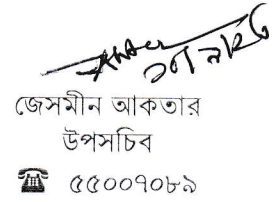 জেসমীন আকতার
উপসচিব
☎ ৫৫০০৭০৮৯